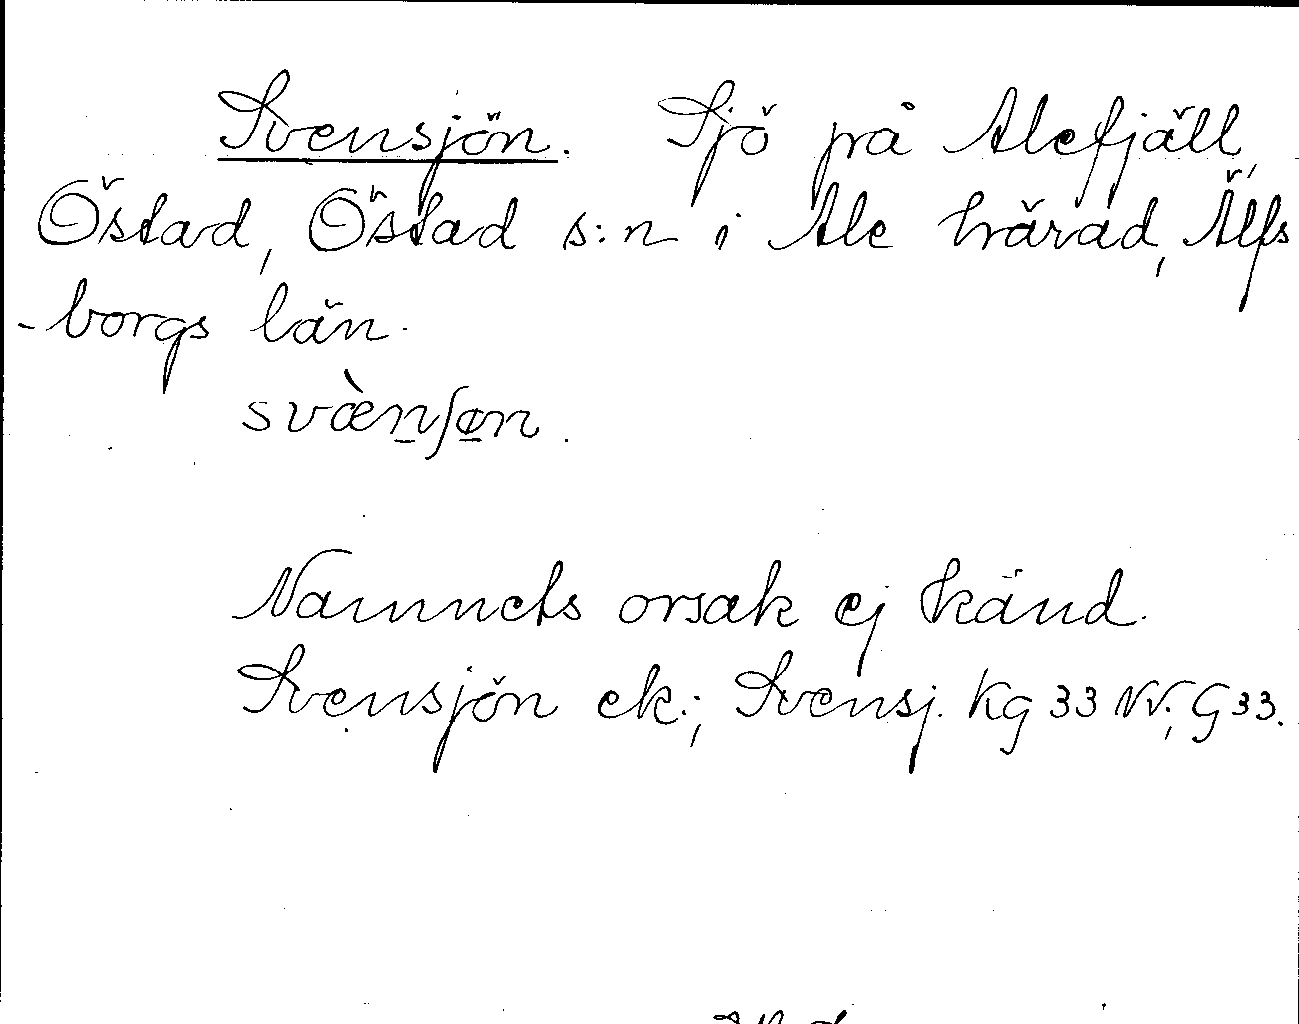 Svensjön. Sjö på Alefjäll,
Östad, Östad s:n i Ale härad, Älfs
-borgs län.
svæ̀nʃøn.
Namnets orsak ej känd.
Svensjön ek.; Svensj. Kg 33 NV.; G 33.